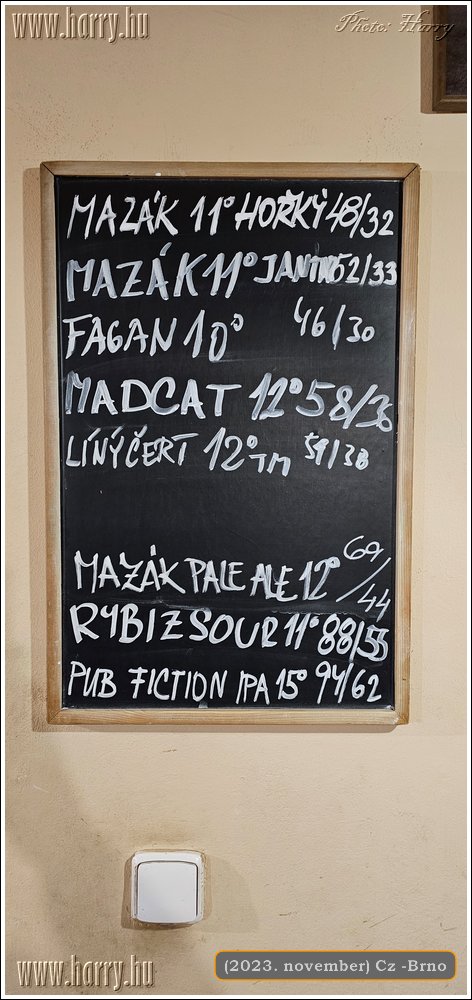 www.harry.hu
Photo: Harry
MAZÁK 11° HOŘKÝ 48/32
MAZÁK 11° JANTAR 52/33
FAGAN 10° 46/30
MADCAT 12° 58/36
LÍNÝ ČERT 12° TM 59/38
MAZÁK PALE ALE 12° 69/44
RYBIZ SOUR 11° 88/55
PUB FICTION IPA 15° 94/62
www.harry.hu
(2023. november) Cz -Brno